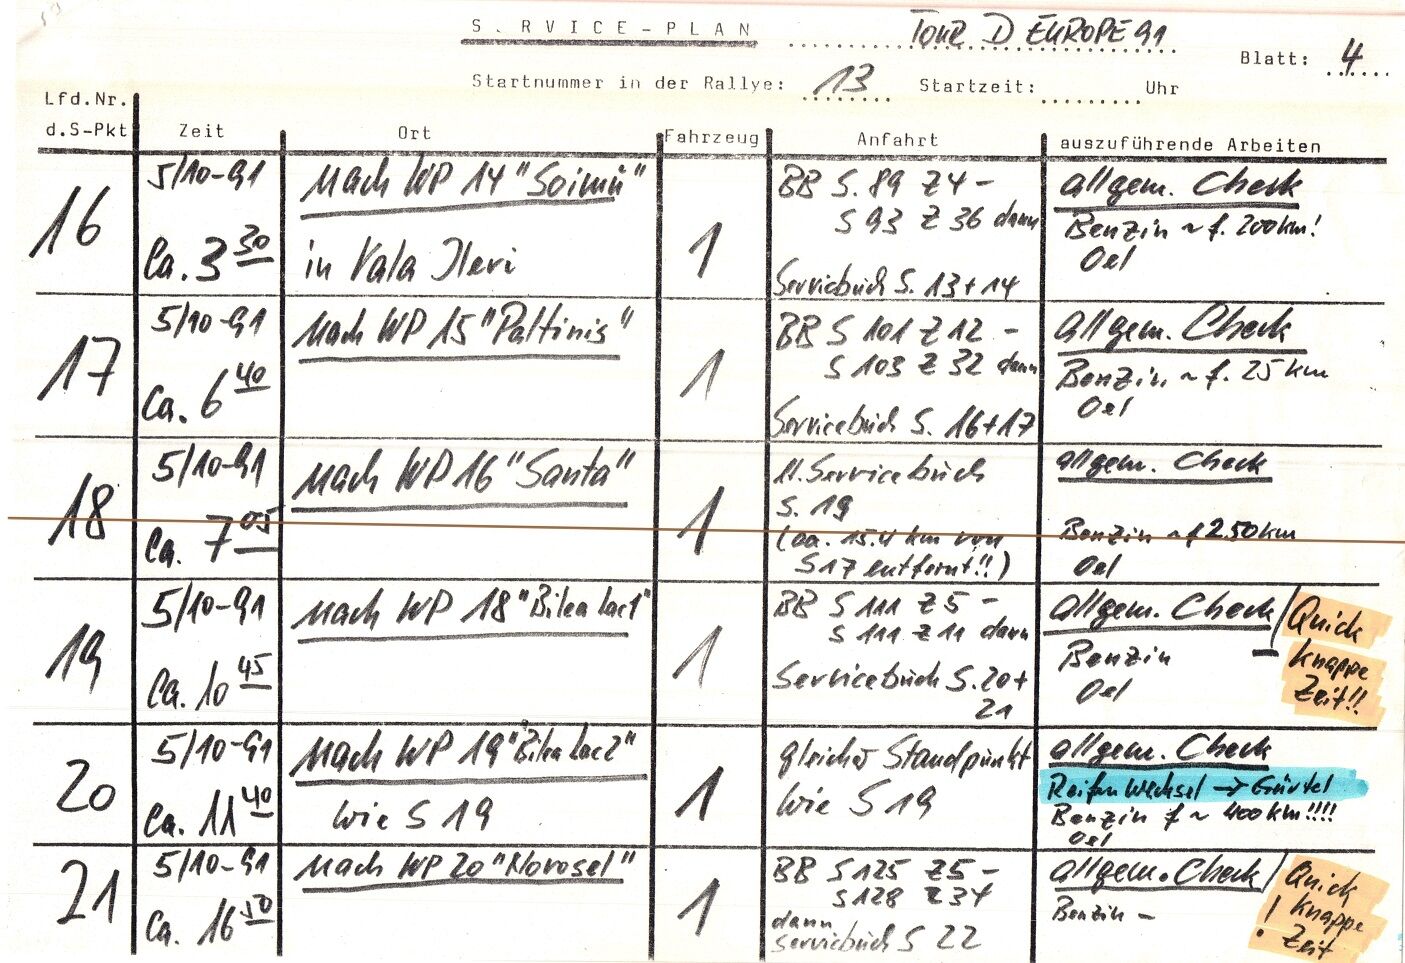 S.RVICE-PLAN TOUR D EUROPE 91
Blatt: 4
Startnummer in der Rallye: 13 Startzeit: Uhr
Lfd.Nr. d.S-Pkt Zeit Ort Fahrzeug Anfahrt auszuführende Arbeiten
16
5/10-91
Ca. 3 30
Nach WP 14 "Soimu"
in Vala Ileri
1
BB S. 89 Z4 -
S 93 Z 36 dann
Servicebuch S. 13+14
allgem. Check
Benzin ~ f. 200km!
Oel
17
5/10-91
Ca. 6 40
Nach WP 15 "Paltinis"
1
BB S 101 Z 12 -
S 103 Z 32 dann
Servicebuch S. 16+17
allgem. Check
Benzin ~ f. 25 km
Oel
18
5/10-91
Ca. 7 05
Nach WP 16 "Santa"
1
n. Servicebuch
S. 19
(ca. 15.4 km von
S17 entfernt!!)
allgem. Check
Benzin ~ f 250 km
Oel
19
5/10-91
Ca. 10 45
Nach WP 18 "Bilea Lac1"
1
BB S 111 Z5 -
S 111 Z 11 dann
Servicebuch S. 20+
21
allgem. Check / Quick
Benzin - Knappe
Oel Zeit!!
20
5/10-91
Ca. 11 40
Nach WP 19 "Bilea Lac2"
wie S 19
1
gleicher Standpunkt
wie S 19
allgem. Check
Reifenwechsel → Gürtel
Benzin f ~ 400km!!!!
Oel
21
5/10-91
Ca. 16 50
Nach WP 20 "Novosel"
1
BB S 125 Z5 -
S 128 Z 34
dann
Servicebuch S 22
allgem. Check / Quick
Benzin - ! Knappe
Zeit